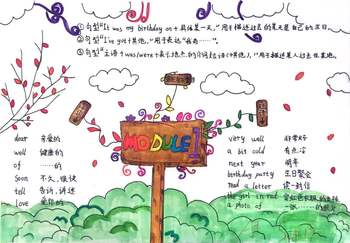 ①句型"It was my birthday on+具体某一天。"用于描述过去的某天是自己的生日。
②句型"I've got+其他."用于表达"我有……"。
③句型"主语+was/were+表示地点的介词短语(+其他)."用于描述某人过去在某地。
MODULE 1
dear 亲爱的
well 健康的
of ……的
soon 不久，很快
tell 告诉，讲述
love 爱你的
very well 非常好
a bit cold 有点冷
next year 明年
birthday party 生日聚会
read a letter 读一封信
the girl in red
a photo of